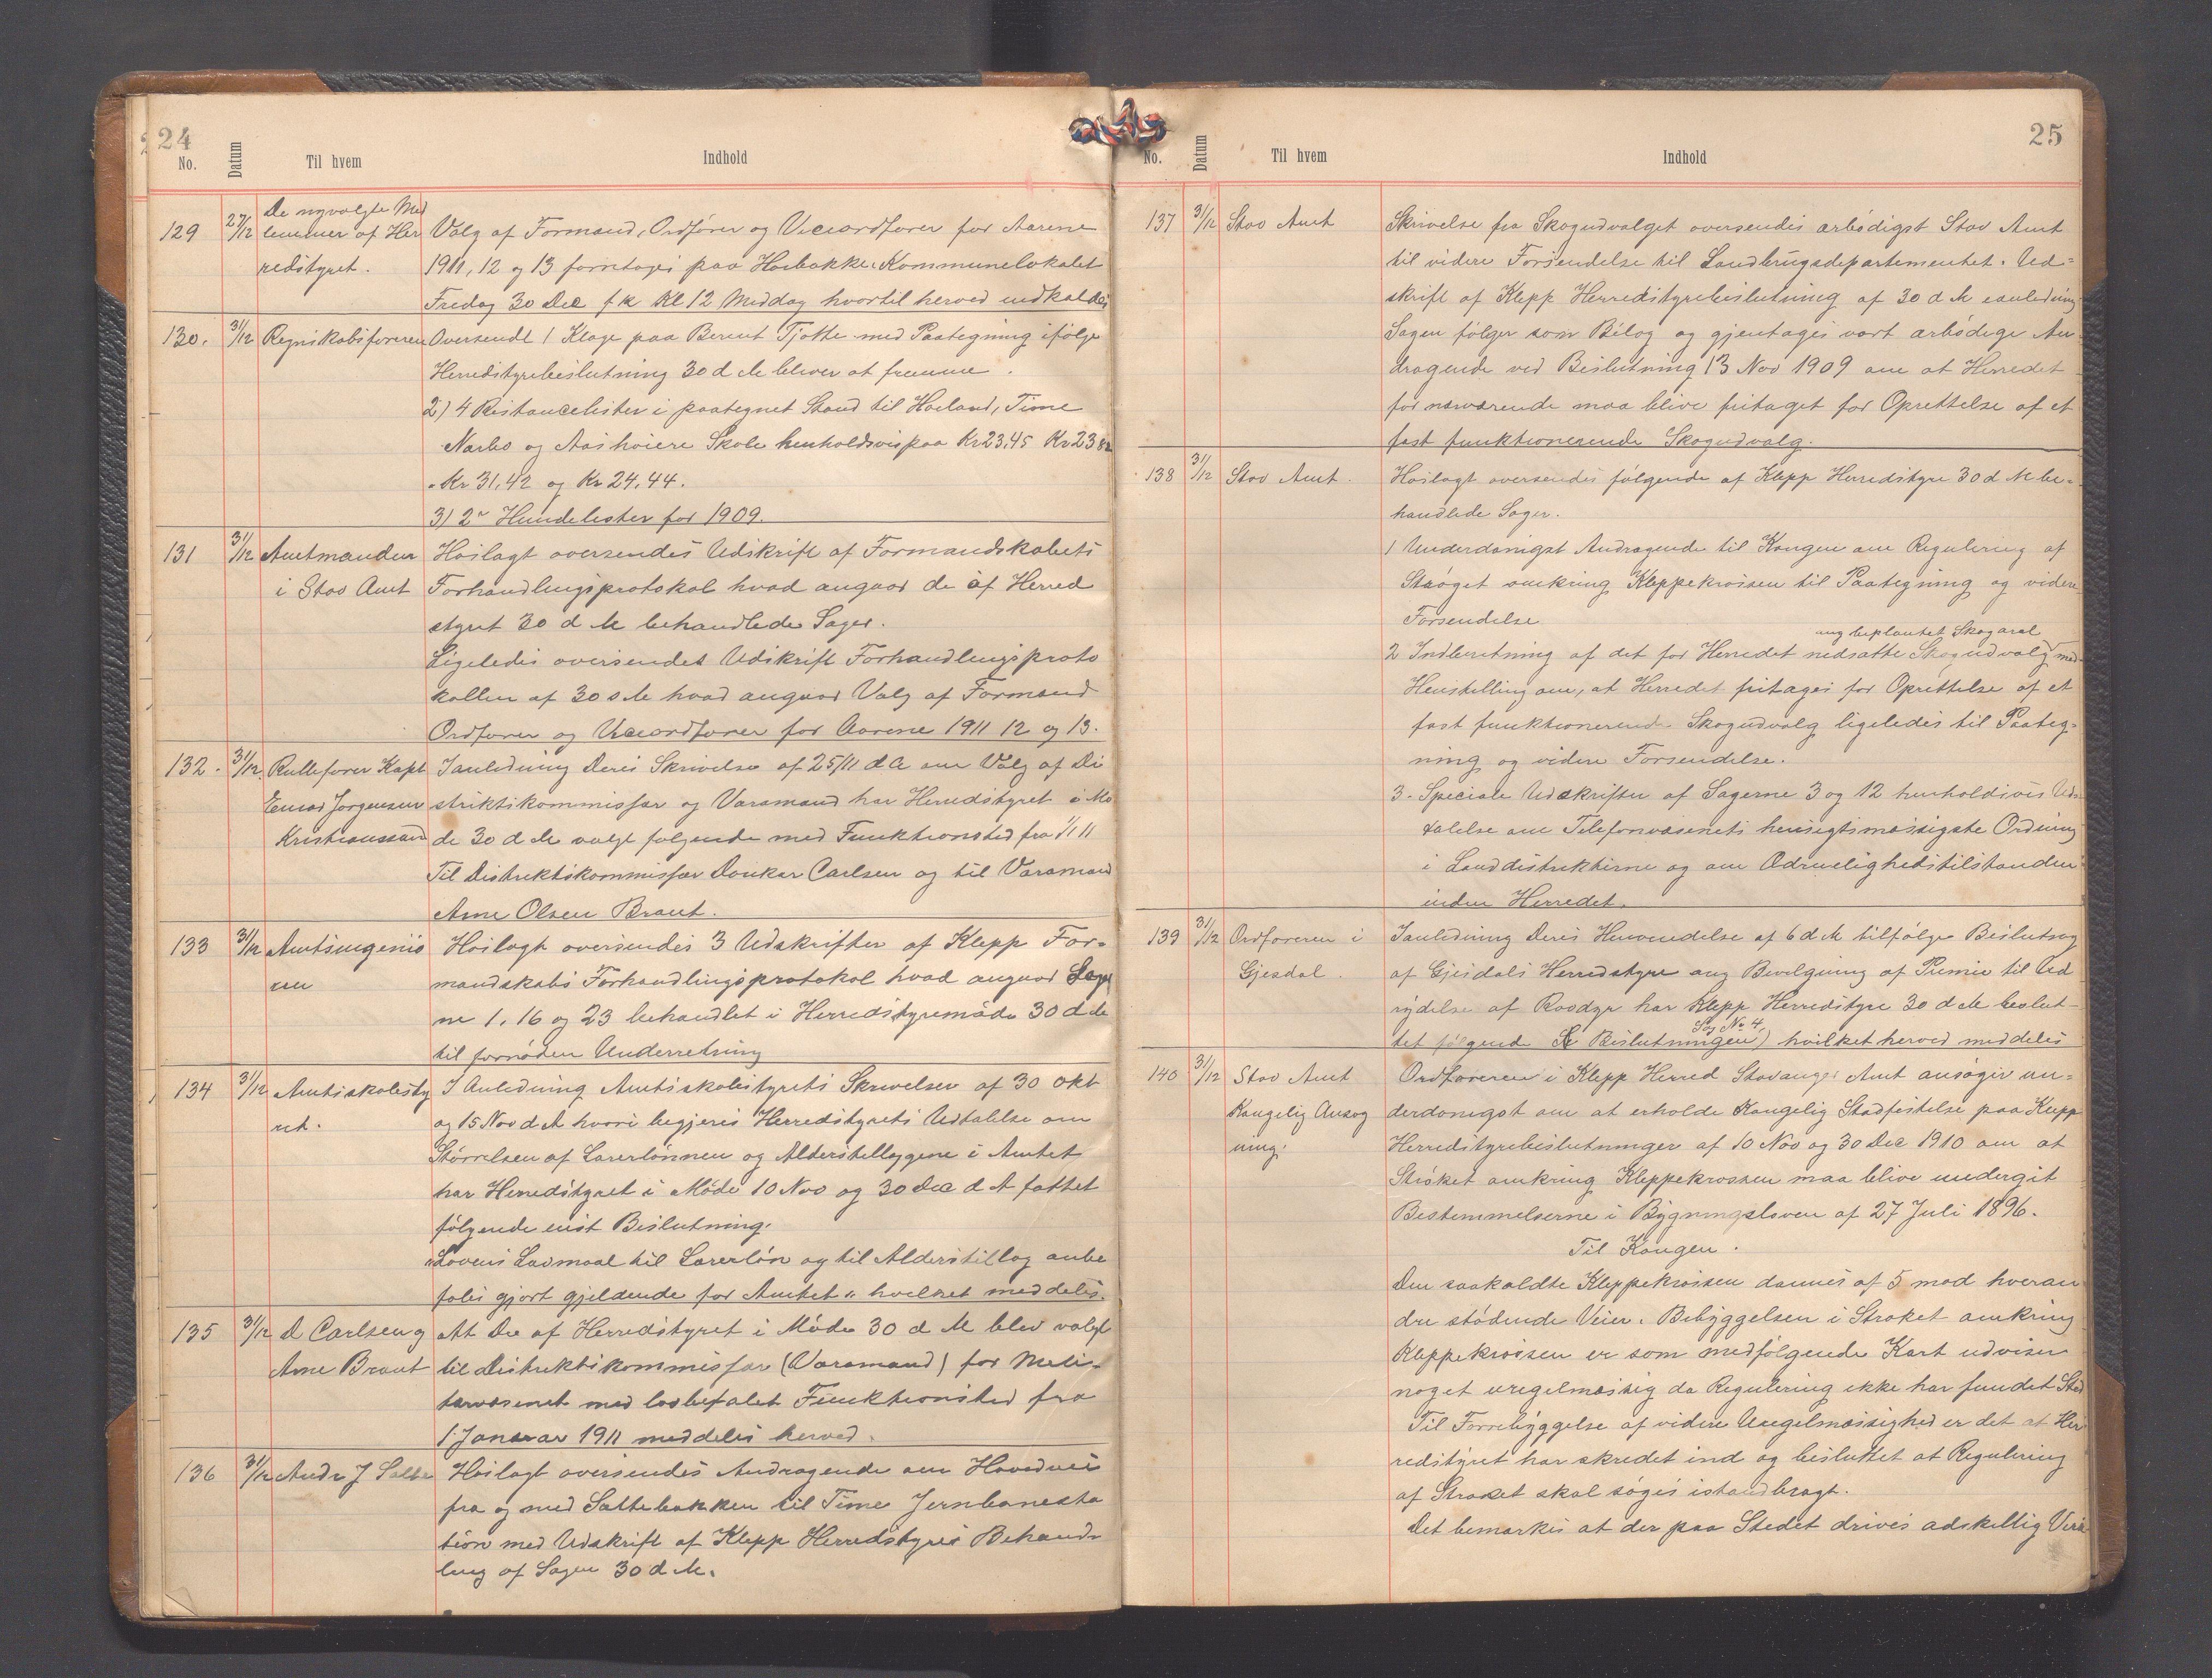 24
No. Datum Til hvem Indhold
129 27/12 De nyvalgte Med
lemmer af Her
redstyret.
Valg af Formand, Ordfører og Viceordfører for Aarene
1911, 12 og 13 foretages paa Hosbakke Kommunelokalet
Fredag 30 Dec f k Kl 12 Middag hvortil herved indkaldes
130. 31/12 Regnskabsføreren Oversendt 1 Klage paa Berent Tjøtte med Paategning ifølge
Herredstyrebeslutning 30 d M bliver at fremme.
2) 4 Restancelister i paategnet Stand til Horland, Time
Nærbø og Aashøiere Skole henholdsvis paa Kr 23,45 Kr 23 82
" Kr 31,42 og Kr 24,44.
3) 2 Hundelister for 1909.
131 31/12 Amtmanden
i Stav Amt
Hoslagt oversendes Udskrift af Formandskabets
Forhandlingsprotokol hvad angaar de af Herred
styret 30 d M behandlede Sager.
Ligeledes oversendes Udskrift Forhandlingsproto
kollen af 30 s M hvad angaar Valg af Formand
Ordfører og Viceordfører for Aarene 1911 12 og 13.
132. 31/12. Rullefører Kapt
Jørgensen
Kristianssand
I anledning Deres Skrivelse af 25/11 d A om Valg af Di
striktskommissær og Varamand har Herredstyret i Mø
de 30 d M valgt følgende med Funktionstid fra 1/1 11
Til Distriktskommissær Carlsen og til Varamand
Arne Olsen Braut.
133 31/12 Amtsingeniø
ren
Hoslagt oversendes 3 Udskrifter af Klepp For=
mandskabs Forhandlingsprotokol hvad angaar Sager
ne 1, 16 og 23 behandlet i Herredstyremøde 30 d M
til fornøden Underretning
134 31/12 Amtsskolesty
ret.
I Anledning Amtsskolestyrets Skrivelser af 30 Okt
og 15 Nov d A hvori begjæres Herredstyrets Udtalelse om
Størrelsen af Lærerlønnen og Alderstillæggene i Amtet
har Herredstyret i Møde 10 Nov og 30 Dec d A fattet
følgende enst Beslutning.
"Lovens Lavmaal til Lærerløn og til Alderstillæg anbe
fales gjort gjeldende for Amtet" hvilket meddeles.
135 31/12 D Carlsen og
Arne Braut
At De af Herredstyret i Møde 30 d M blev valgt
til Distriktskommissær (Varamand) for Mili=
tærvæsenet med lovbefalet Funktionstid fra
1 Januar 1911 meddeles herved.
136 31/12 Andr J Salte
Hoslagt oversendes Andragende om Hovedvei
fra og med Sattebakken til Time Jernbanesta
tion med Udskrift af Klepp Herredstyres Behand
ling af Sagen 30 d M.
25
No. Datum Til hvem Indhold
137 31/12 Stav Amt
Skrivelse fra Skogudvalget oversendes ærbødigst Stav Amt
til videre Forsendelse til Landbrugsdepartementet. Ud=
skrift af Klepp Herredstyrebeslutning af 30 d M i anledning
Sagen følger som Bilag og gjentages vort ærbødige An
dragende ved Beslutning 13 Nov 1909 om at Herredet
for nærværende maa blive fritaget for Oprettelse af et
fast funktionerende Skogudvalg.
138 31/12 Stav Amt.
Hoslagt oversendes følgende af Klepp Herredstyre 30 d M be=
handlede Sager.
1 Underdanigst Andragende til Kongen om Regulering af
Strøget omkring Kleppekrossen til Paategning og videre
Forsendelse
ang beplantet Skogareal
2 Indberetning af det for Herredet nedsatte Skogudvalg med
Henstilling om, at Herredet fritages for Oprettelse af et
fast funktionerende Skogudvalg ligeledes til Paateg=
ning og videre Forsendelse.
3. Speciale Udskrifter af Sagerne 3 og 12 henholdsvis Ud=
talelse om Telefonvæsenets hensigtsmæssigste Ordning
i Landdistrikterne og om Ædruelighedstilstanden
inden Herredet.
139 31/12 Ordføreren i
Gjesdal.
I anledning Deres Henvendelse af 6 d M tilfølge Beslutning
af Gjesdals Herredstyre ang Bevilgning af Premie til Ud
rydelse af Rovdyr har Klepp Herredstyre 30 d M beslut=
Sag No 4,
tet følgende Se Beslutningen) hvilket herved meddeles
140 31/12 Stav Amt
Kongelig Ansøg
ning.
Ordføreren i Klepp Herred Stavanger Amt ansøger un=
derdanigst om at erholde Kongelig Stadfestelse paa Klepp
Herredstyrebeslutninger af 10 Nov og 30 Dec 1910 om at
Strøket omkring Kleppekrossen maa blive undergit
Bestemmelserne i Bygningsloven af 27 Juli 1896.
Til Kongen.
Den saakaldte Kleppekrossen dannes af 5 mod hveran
dre stødende Veier. Bebyggelsen i Strøket omkring
Kleppekrossen er som medfølgende Kart udviser
noget uregelmæssig da Regulering ikke har fundet Sted
Til Forrebyggelse af videre Uregelmæssighed er det at Her
redstyret har skredet ind og besluttet at Regulering
af Strøket skal søges istandbragt.
Det bemærkes at der paa Stedet drives adskillig Virk